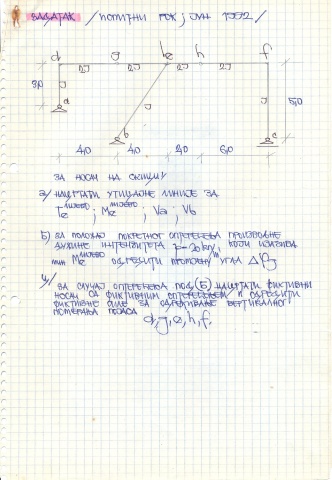 ЗАДАТАК /ПИСМЕНИ РОК, ЈУН 1992/
d g e h f
2J 2J 2J 2J
3,0 J J J 5,0
a
b c
4,0 4,0 4,0 6,0
ЗА НОСАЧ НА СКИЦИ:
а/ НАЦРТАТИ УТИЦАЈНЕ ЛИНИЈЕ ЗА
Te ЛИЈЕВО ; Me ЛИЈЕВО ; Va ; Vb
Б/ ЗА ПОЛОЖАЈ ПОКРЕТНОГ ОПТЕРЕЋЕЊА ПРОИЗВОЉНЕ
ДУЖИНЕ ИНТЕНЗИТЕТА p=20 kN/m, КОЈИ ИЗАЗИВА
min Me ЛИЈЕВО ОДРЕДИТИ ПРОМЈЕНУ УГЛА
ц/ ЗА СЛУЧАЈ ОПТЕРЕЋЕЊА ПОД (Б) НАЦРТАТИ ФИКТИВНИ
НОСАЧ СА ФИКТИВНИМ ОПТЕРЕЋЕЊЕМ И ОДРЕДИТИ
ФИКТИВНЕ СИЛЕ ЗА ОДРЕЂИВАЊЕ ВЕРТИКАЛНОГ
ПОМЕРАЊА ПОЈАСА
d, g, e, h, f.